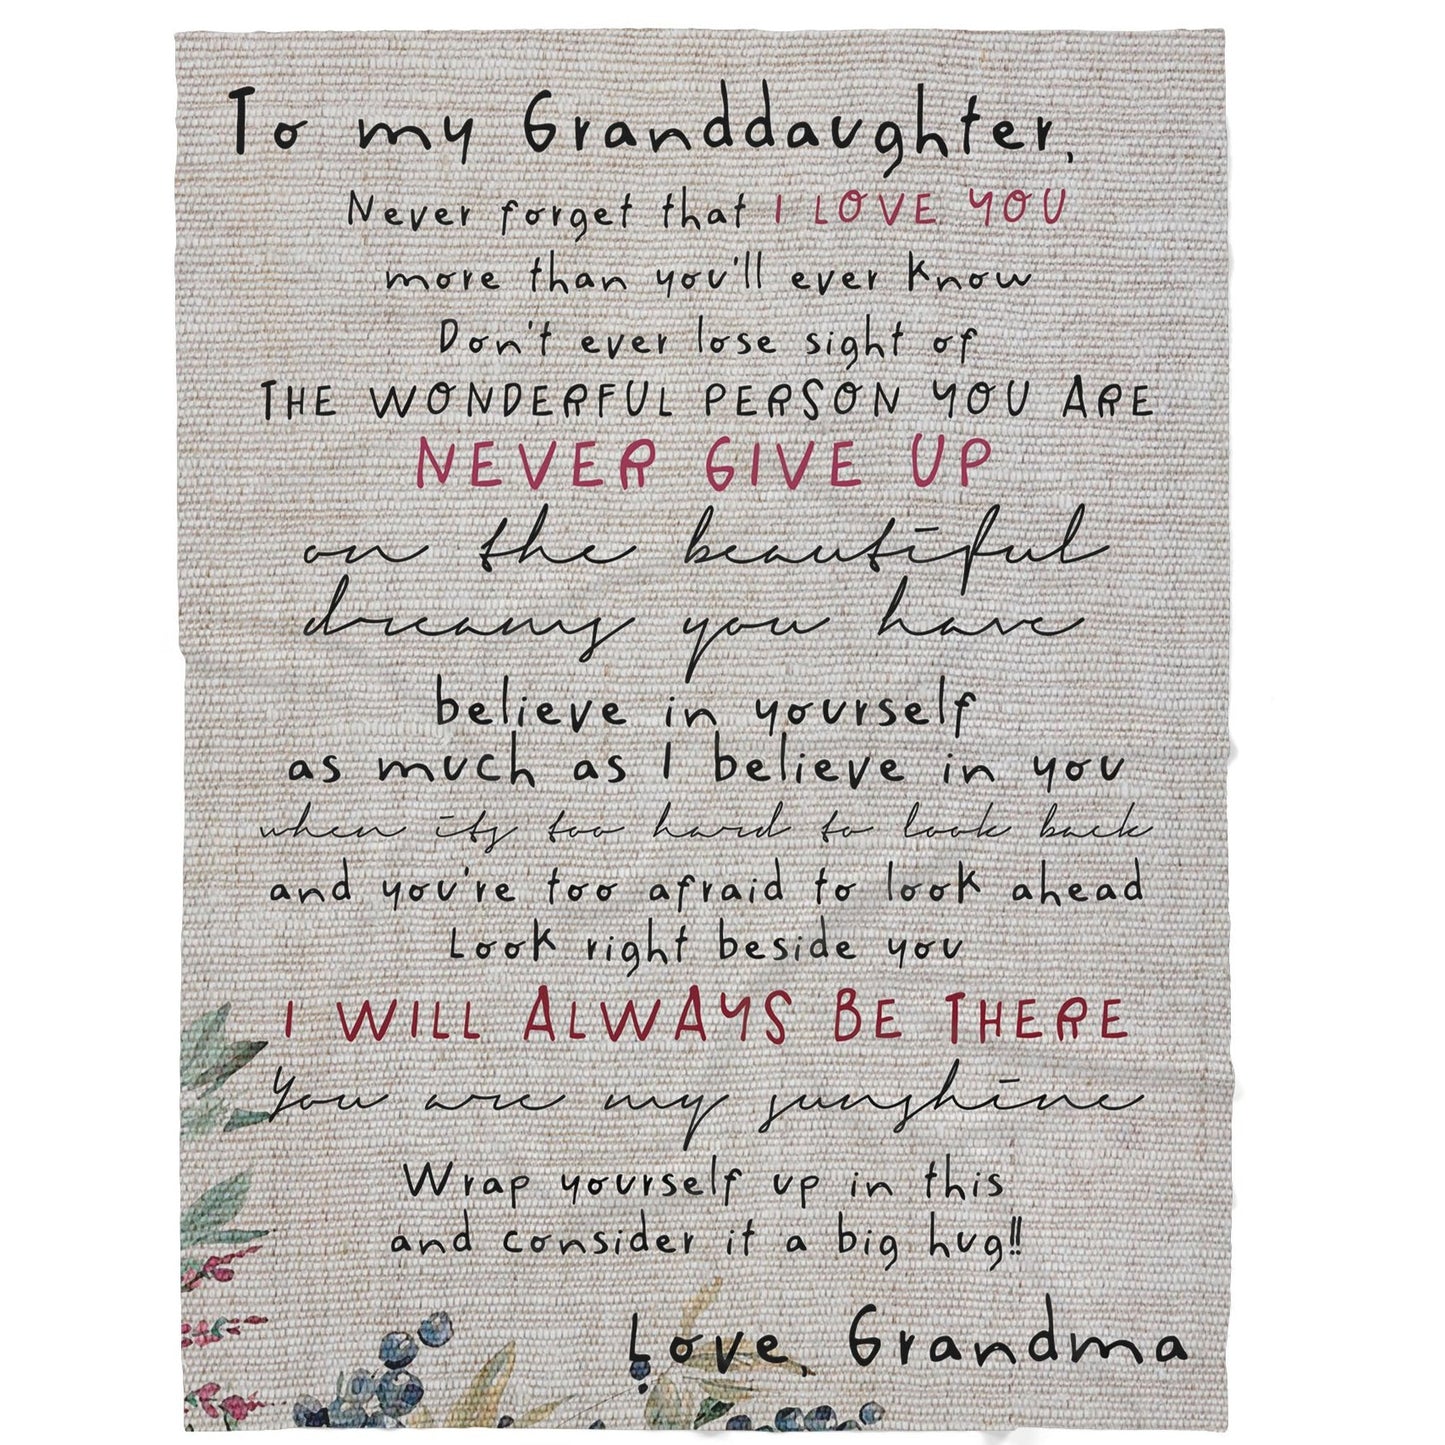 To my Granddaughter,
Never forget that I LOVE YOU
more than you'll ever know
Don't ever lose sight of
THE WONDERFUL PERSON YOU ARE
NEVER GIVE UP
on the beautiful
dreams you have
believe in yourself
as much as I believe in you
when its too hard to look back
and you're too afraid to look ahead
Look right beside you
I WILL ALWAYS BE THERE
You are my sunshine
Wrap yourself up in this
and consider it a big hug!!
Love, Grandma